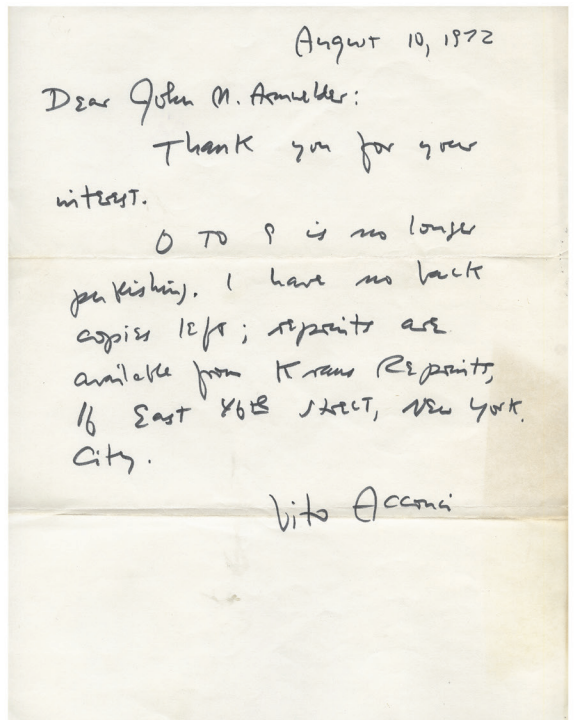 August 10, 1972
Dear John M. Armelder:
Thank you for your
interest.
0 TO 9 is no longer
publishing. I have no back
copies left; reprints are
available from Kraus Reprints,
16 East 46th Street, New York
City.
Vito Acconci